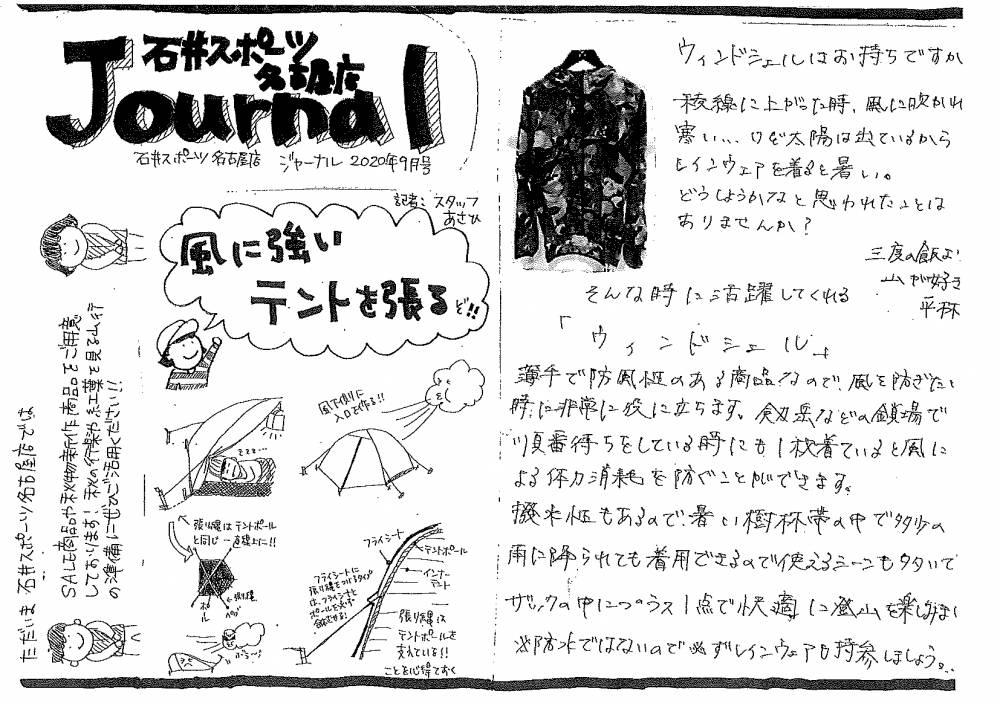 石井スポーツ
名古屋店
Journal
石井スポーツ 名古屋店 ジャーナル 2020年9月号
記者：スタッフ
あさひ
風に強い
テントを張るぞ!!
ただいま 石井スポーツ名古屋店では
SALE商品や秋物新作商品をご用意
しております! 秋の行楽や紅葉を見る山行
の準備にぜひご活用ください!!
風下側に
入口を作る!!
張り縄はテントポール
と同じ一直線上に!!
ポール
張り縄
ペグ
フライシート
テントポール
インナー
テント
フライシートに
張り縄をつけるタイプ
は、フライシートと
ポールを必ず
張り縄は
テントポールを
支えている!!
ことを心得ておく
ウィンドシェルはお持ちですか
稜線に上がった時、風に吹かれ
寒い... けど太陽は出ているから
レインウェアを着ると暑い。
どうしようかなと思われたことは
ありませんか?
三度の飯より
山が好き
平林
そんな時に活躍してくれる
「ウィンドシェル」
薄手で防風性のある商品なので、風を防ぎたい
時に非常に役に立ちます。剱岳などの鎖場で
順番待ちをしている時にも1枚着ていると風に
よる体力消耗を防ぐことができます。
撥水性もあるので、暑い樹林帯の中で多少の
雨に降られても着用できるので使えるシーンも多いで
ザックの中につのうス1点で快適に登山を楽しみまし
必防水ではないので必ずレインウェアも持参しましょう。